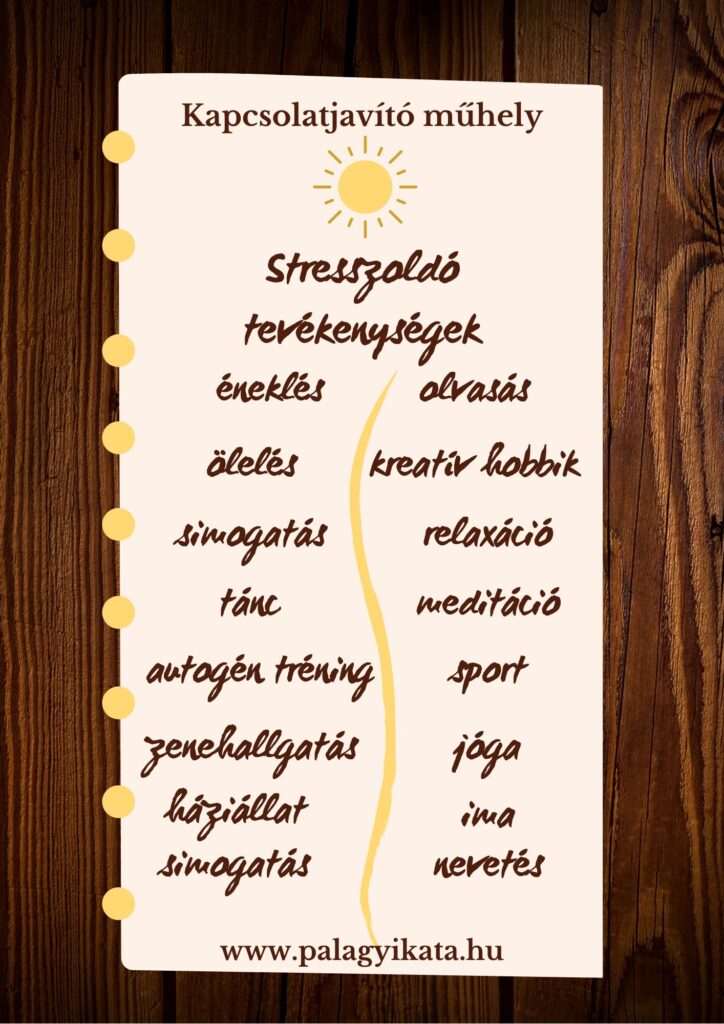 Kapcsolatjavító műhely
Stresszoldó
tevékenységek
éneklés
ölelés
simogatás
tánc
autogén tréning
zenehallgatás
háziállat
simogatás
olvasás
kreatív hobbik
relaxáció
meditáció
sport
jóga
ima
nevetés
www.palagyikata.hu